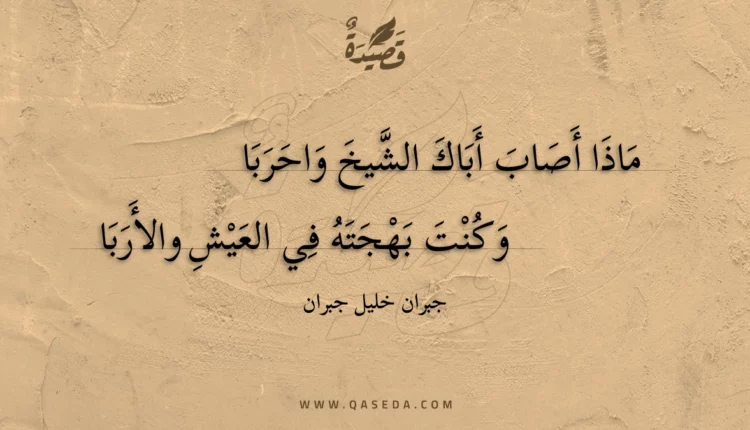 قَصِيْدَةٌ
مَاذَا أَصَابَ أَبَاكَ الشَّيخَ وَاحَرَبَا
وَكُنْتَ بَهْجَتَهُ فِي العَيْشِ والأَرَبَا
جبران خليل جبران
WWW.QASEDA.COM